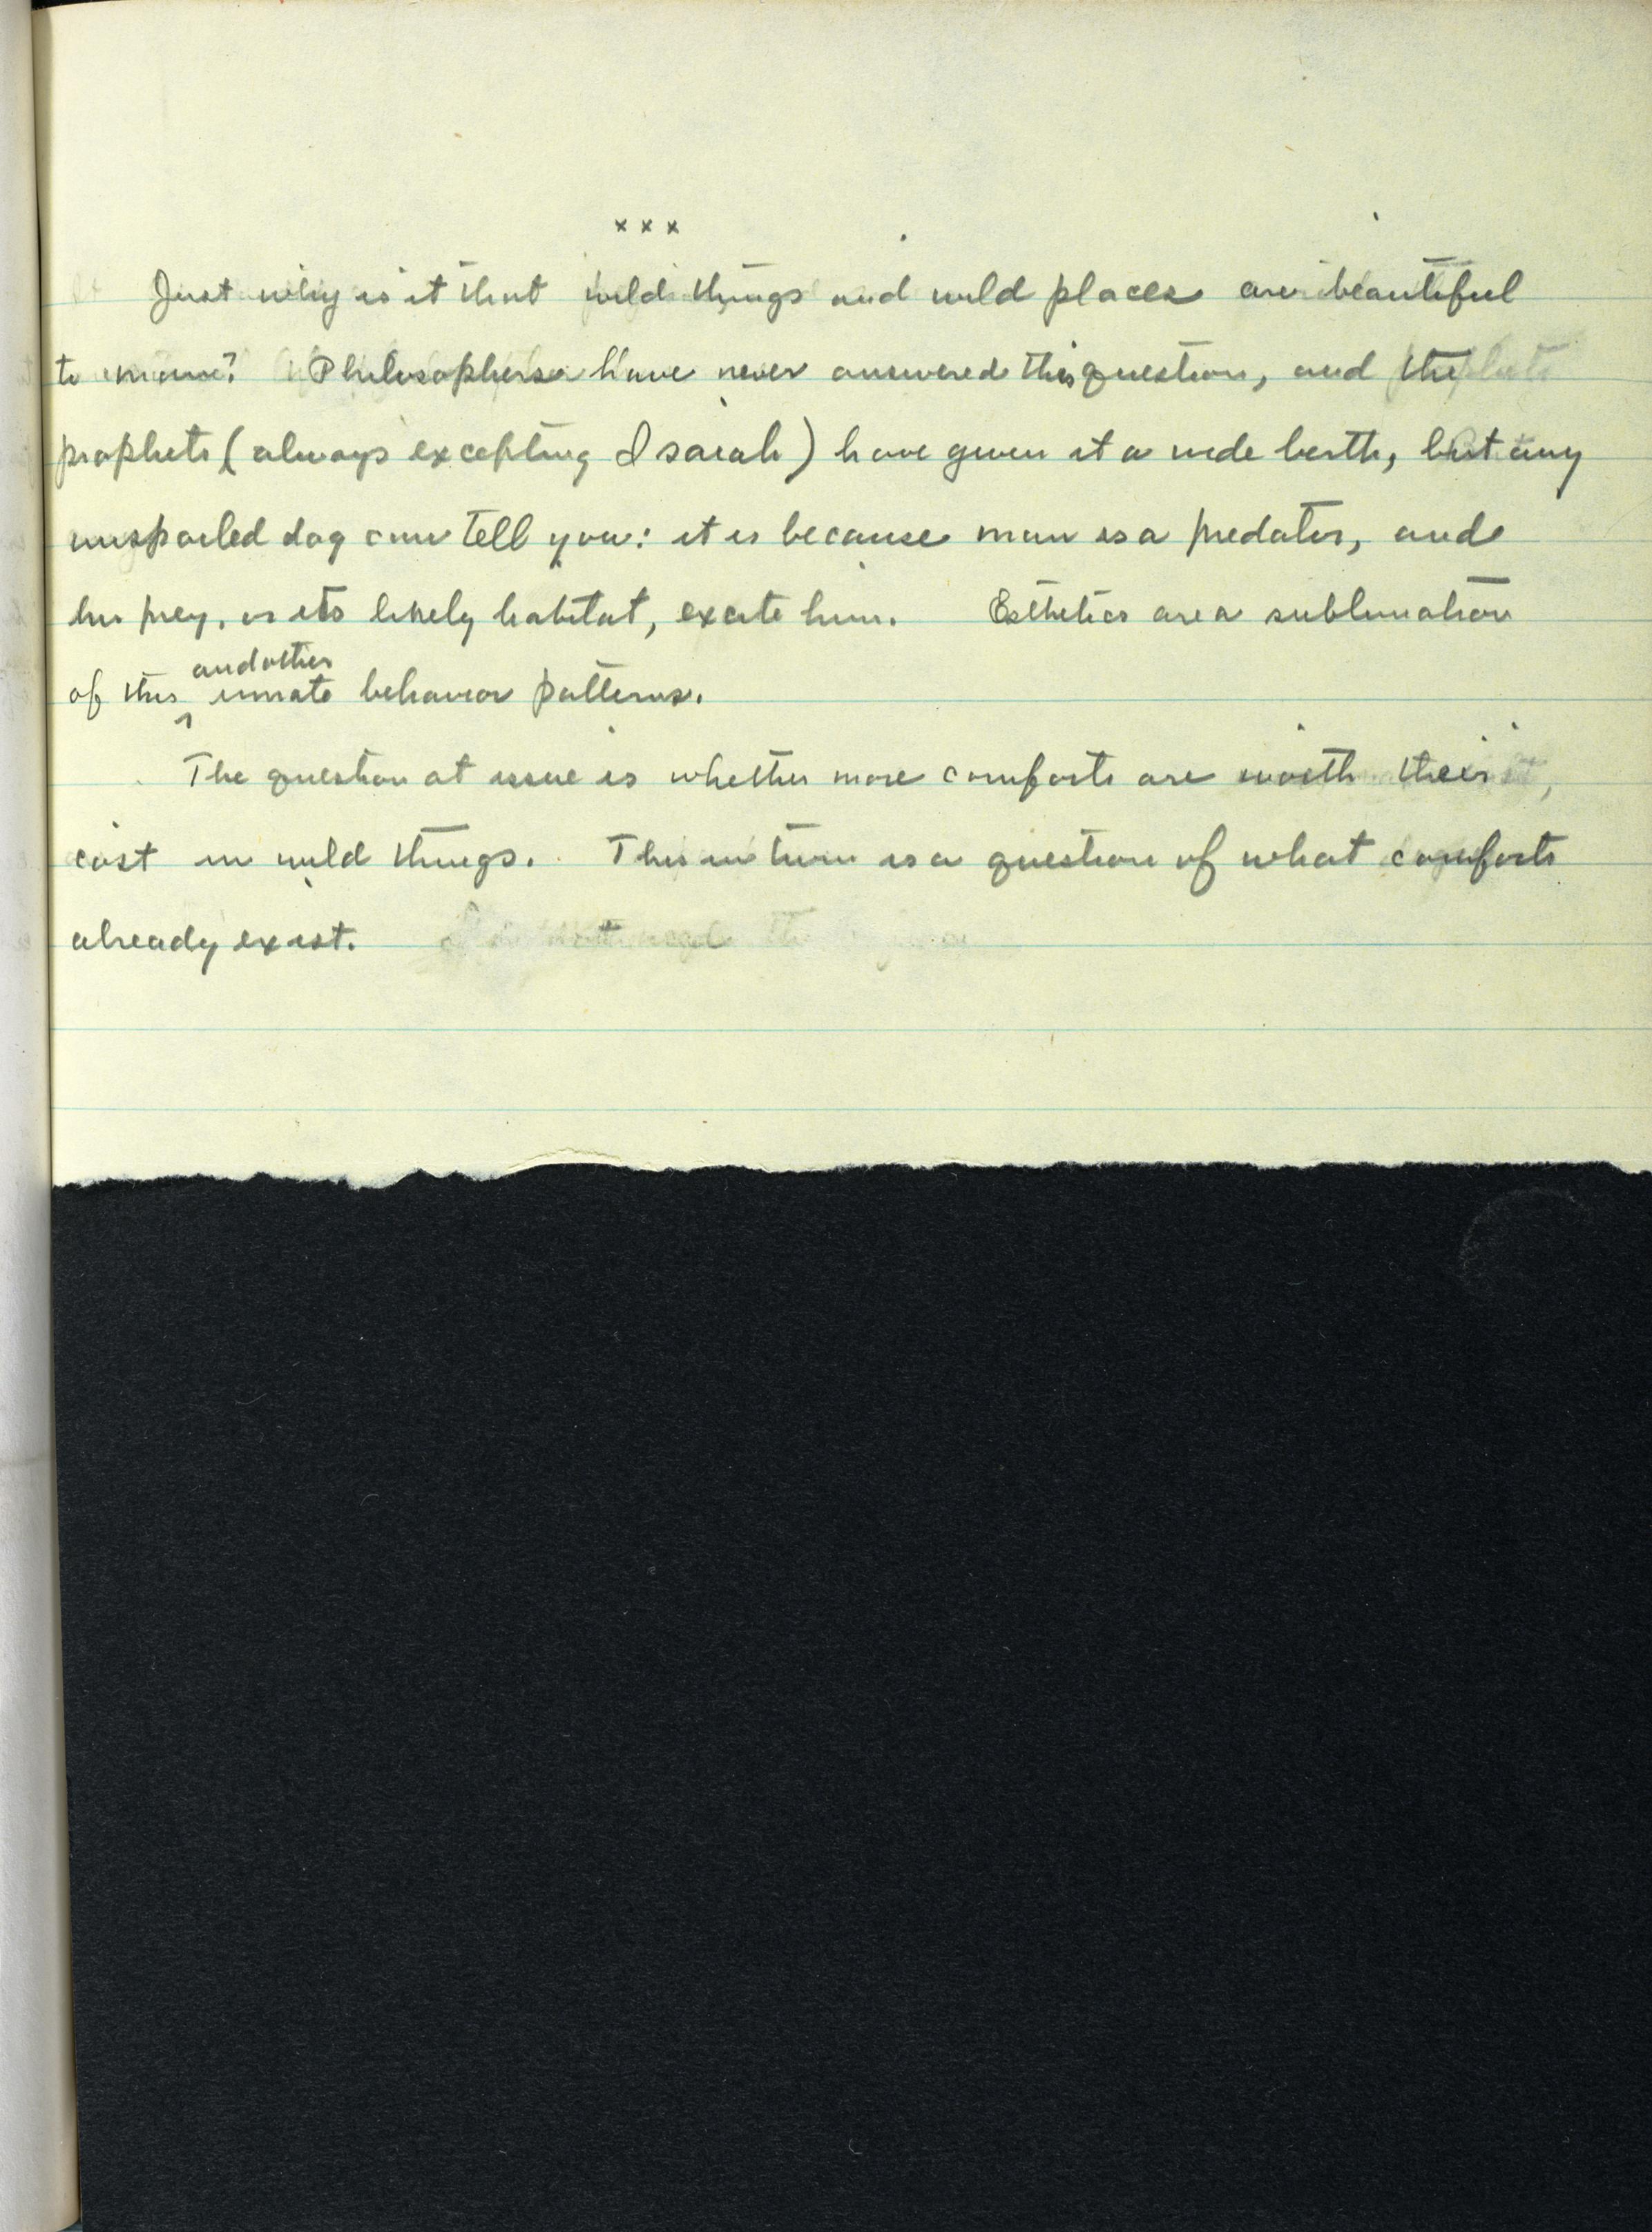 x x x
Just why is it that wild things and wild places are beautiful
to man? Philosophers have never answered this question, and the
prophets (always excepting Isaiah) have given it a wide berth, but any
unspoiled dog can tell you: it is because man is a predator, and
his prey, or its likely habitat, excite him. Esthetics are a sublimation
and other
of this ^ innate behavior patterns.
The question at issue is whether more comforts are worth their
cost in wild things. This in turn is a question of what comforts
already exist.